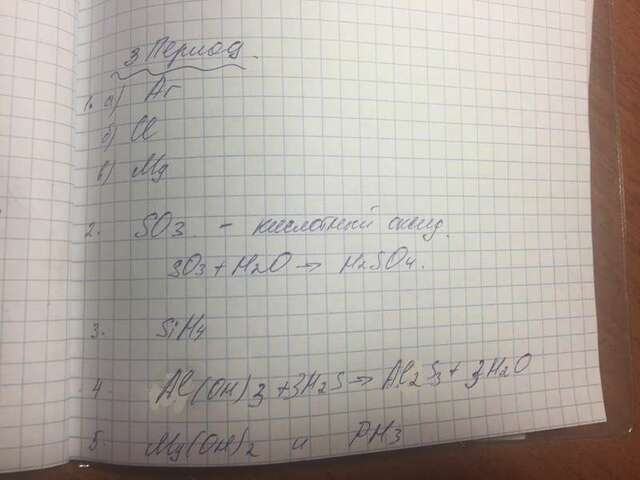 3 Период
1. а) Ar
б) Cl
в) Mg
2. SO3 - кислотный оксид.
SO3 + H2O → H2SO4.
3. SiH4
4 Al(OH)3 + 3H2S → Al2S3 + 3H2O
5. Mg(OH)2 и PH3